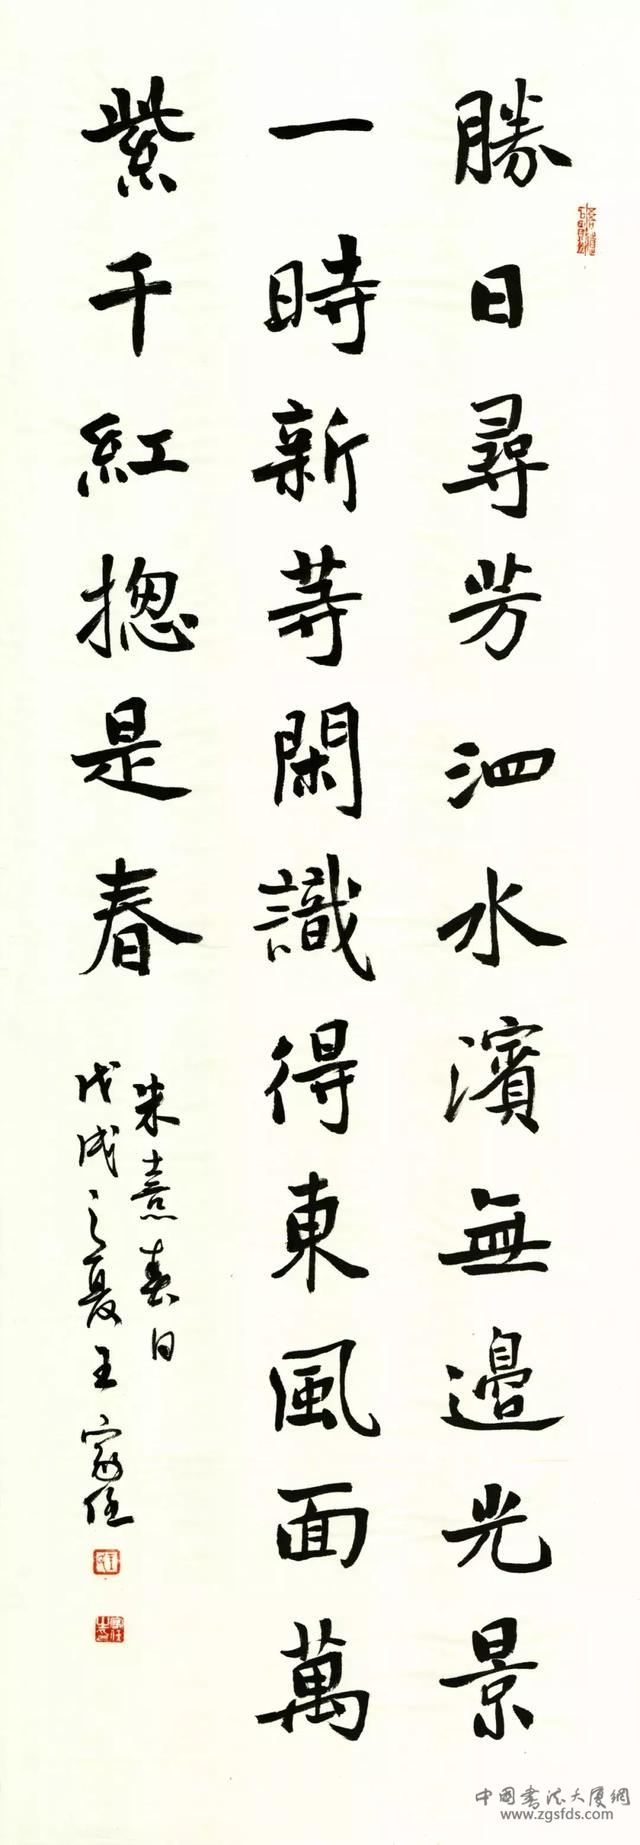 勝日尋芳泗水濱無邊光景
一時新等閑識得東風面萬
紫千紅揔是春
朱熹春日
戊戌之夏王家任
中国书法大厦網
www.zgsfds.com